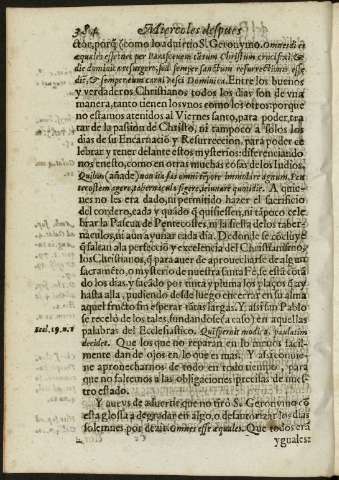 384 Miercoles despues
etor, porq̃ (como lo aduirtio S. Geronymo. Omnes dies
æquales esse: nec per Parasceuem tātum Christum crucifixi: &
die dominico resurgere, sed semper sanctum resurrectionis esse
diē, & semper eum carni vesci Dominica. Entre los buenos
y verdaderos Christianos todos los dias son de vna
manera, tanto tienen los vnos como los otros: porque
no estamos atenidos al Viernes santo, para poder, tra
tar de la pasiōn de Christo, ni tampoco a solos los
dias de su Encarnaciō y Resurreccion, para poder ce
lebrar y tener delante estos mysterios: diferenciando
nos en esto, como en otras muchas cosas de los Iudios.
Quibus (añade) non in fas omni tēpore immolare agnum. Pen
tecostem agere, tabernacula figere, ieiunare quotidie. A quie-
nes no les era dado, ni permitido hazer el sacrificio
del cordero, cada y quādo q̃ quisiessen, ni tāpoco cele
brar la Pascua de Pentecostes, ni la fiesta de los taber-
náculos, ni aun ayunar cada dia. Dedonde se cōcluye
q̃ salean a la perfecciō y excelencia del Christianismo,
los Christianos, q̃ para auer de aprouecharse de algun
sacramēto, o mysterio de nuestra santa Fè, se está cotā
do los dias, y sacādo por tinta y pluma los plaços q̃ ay
hasta alla, pudiendo desde luego encerrar en su alma
aquel fructo sin esperar tātas largas. Y assi san Pablo
se recelò de los tales, fundandose (a caso) en aquellas
Ecl. 19. n. 1 palabras del Ecclesiastico. Qui spernit modica, paulatim
decidet. Que los que no reparan en lo menos facil-
mente dan de ojos en lo que es mas. Y assi conuie-
ne aprouecharnos de todo en todo tiempo, para
que no faltemos a las obligaciones precisas de nues
tro estado.
Y aueys de aduertir que no tirò S. Geronymo cō
esta glossa a degradar en algo, o desautorizar los dias
solemnes por dezir Omnes esse æquales. Que todos erā
yguales: